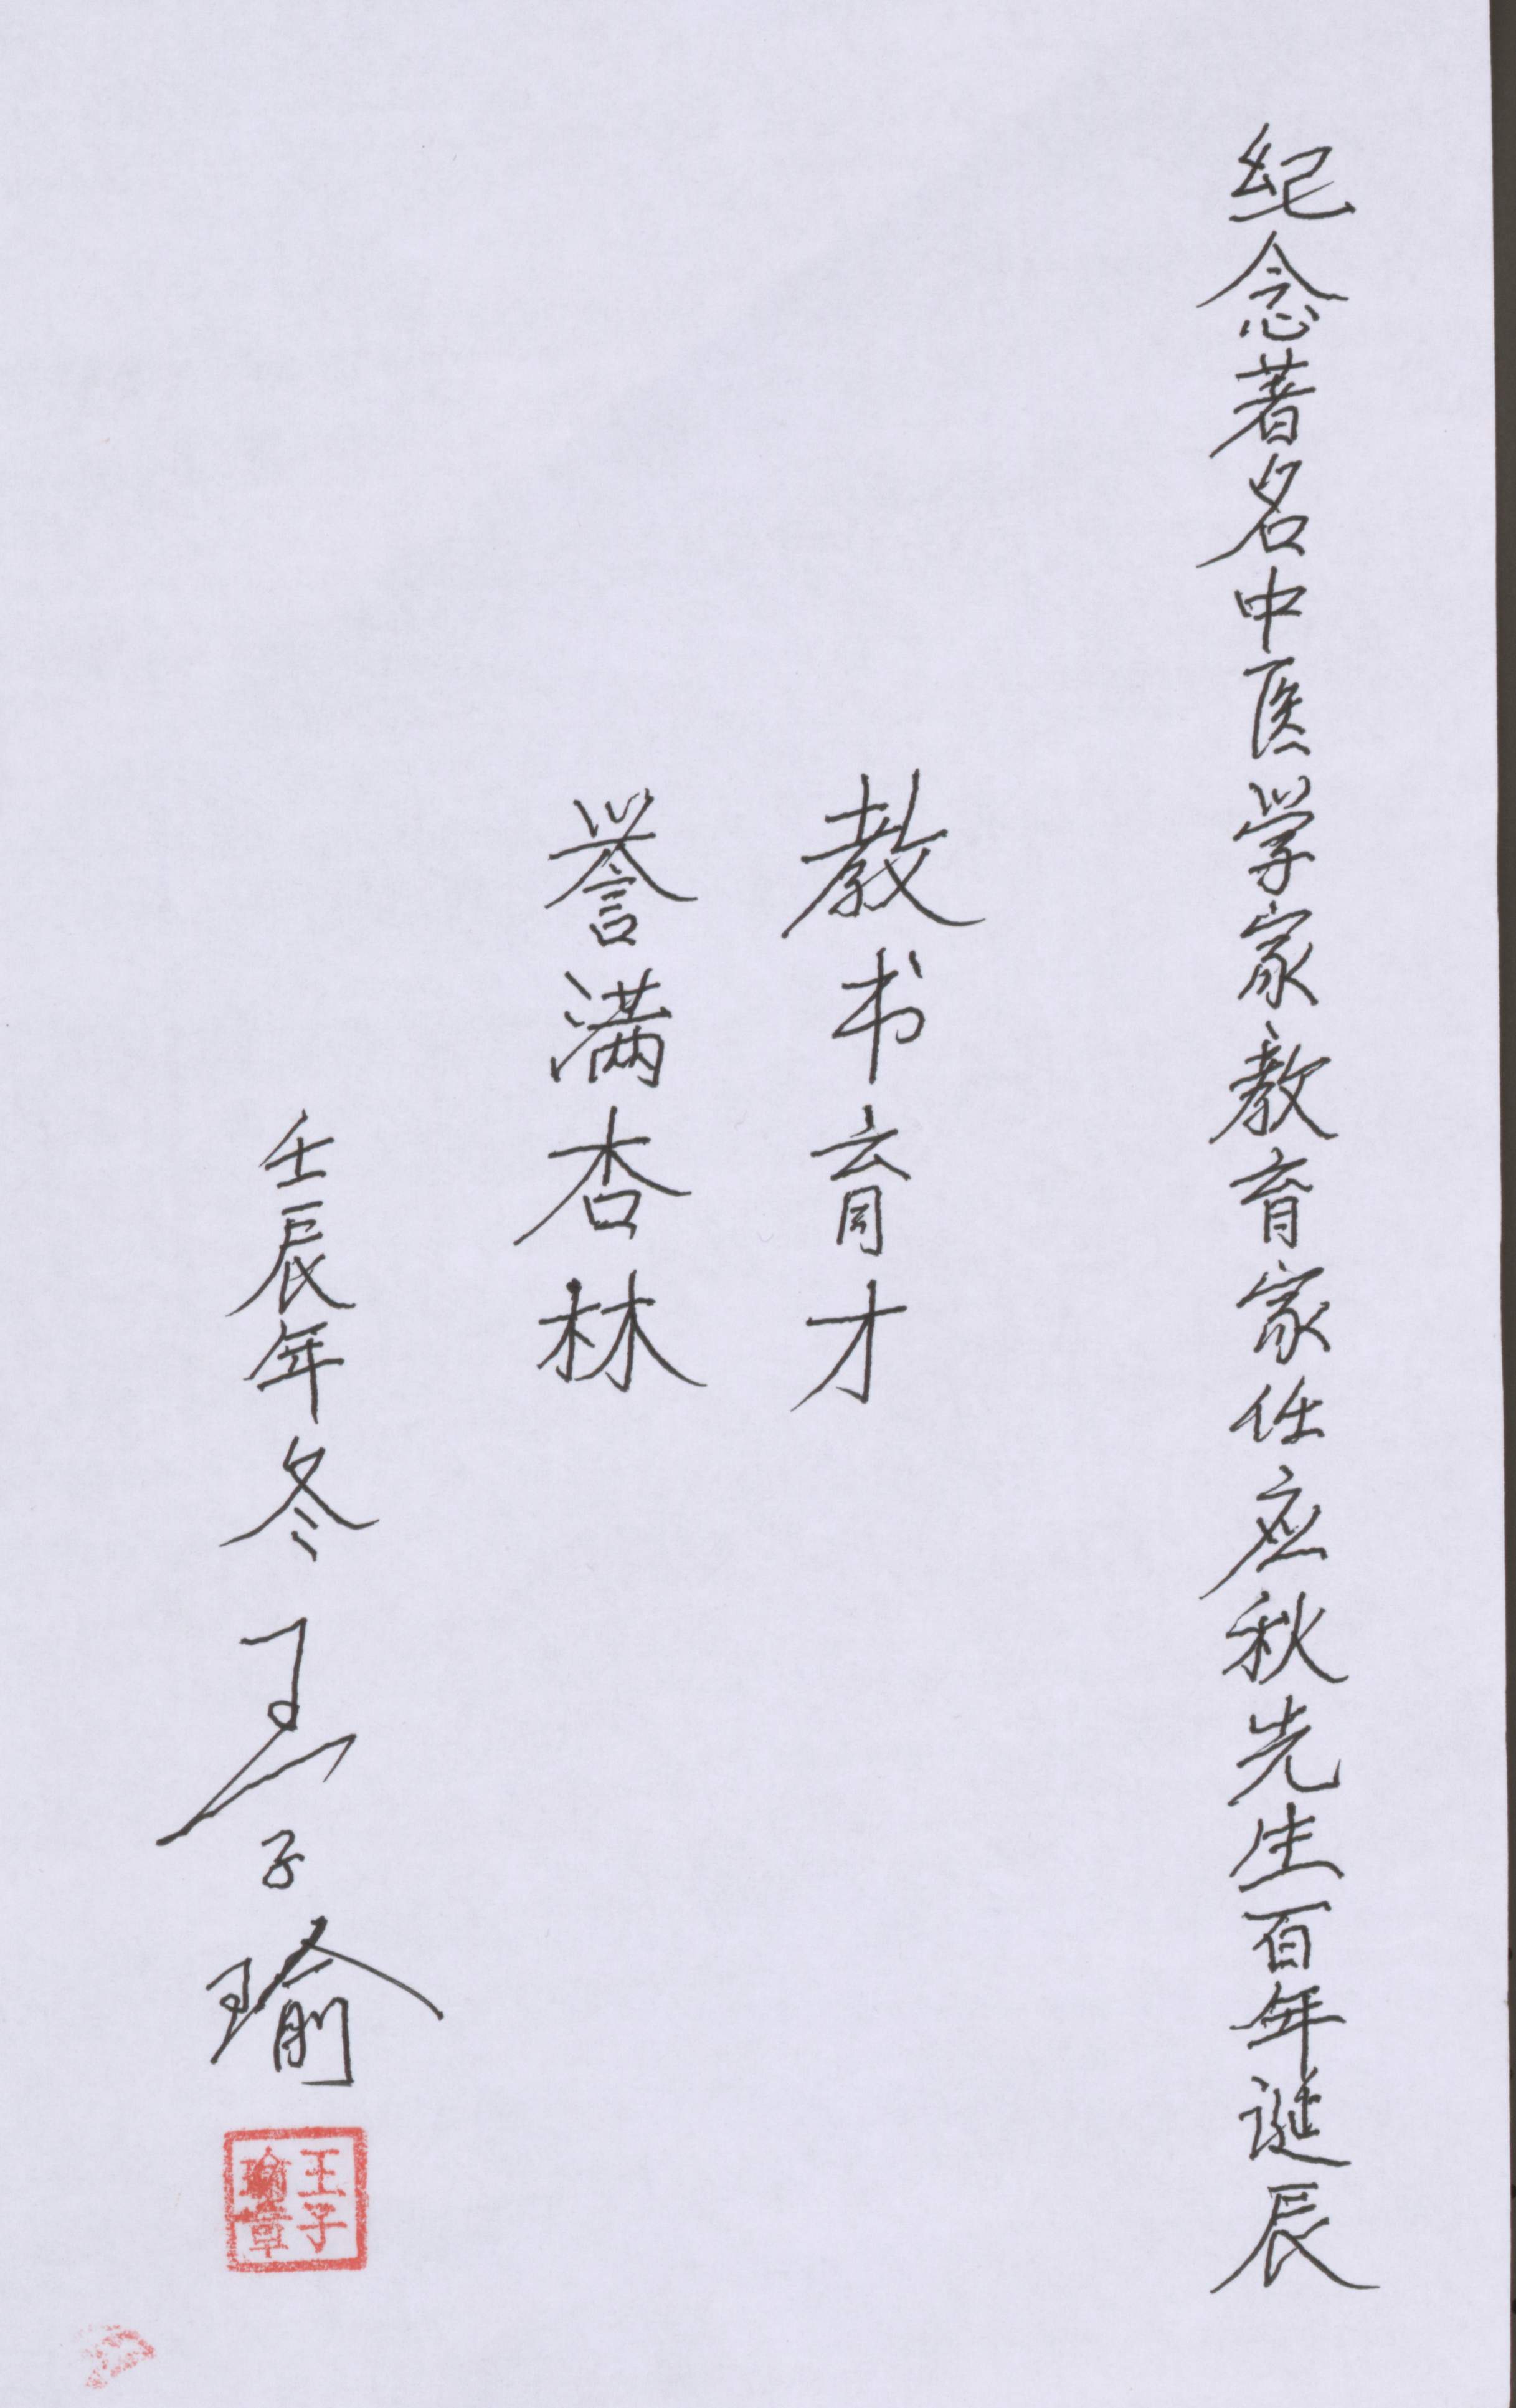 纪念著名中医学家教育家任应秋先生百年诞辰
教书育才
誉满杏林
壬辰年冬 王子瑜
王子
瑜章